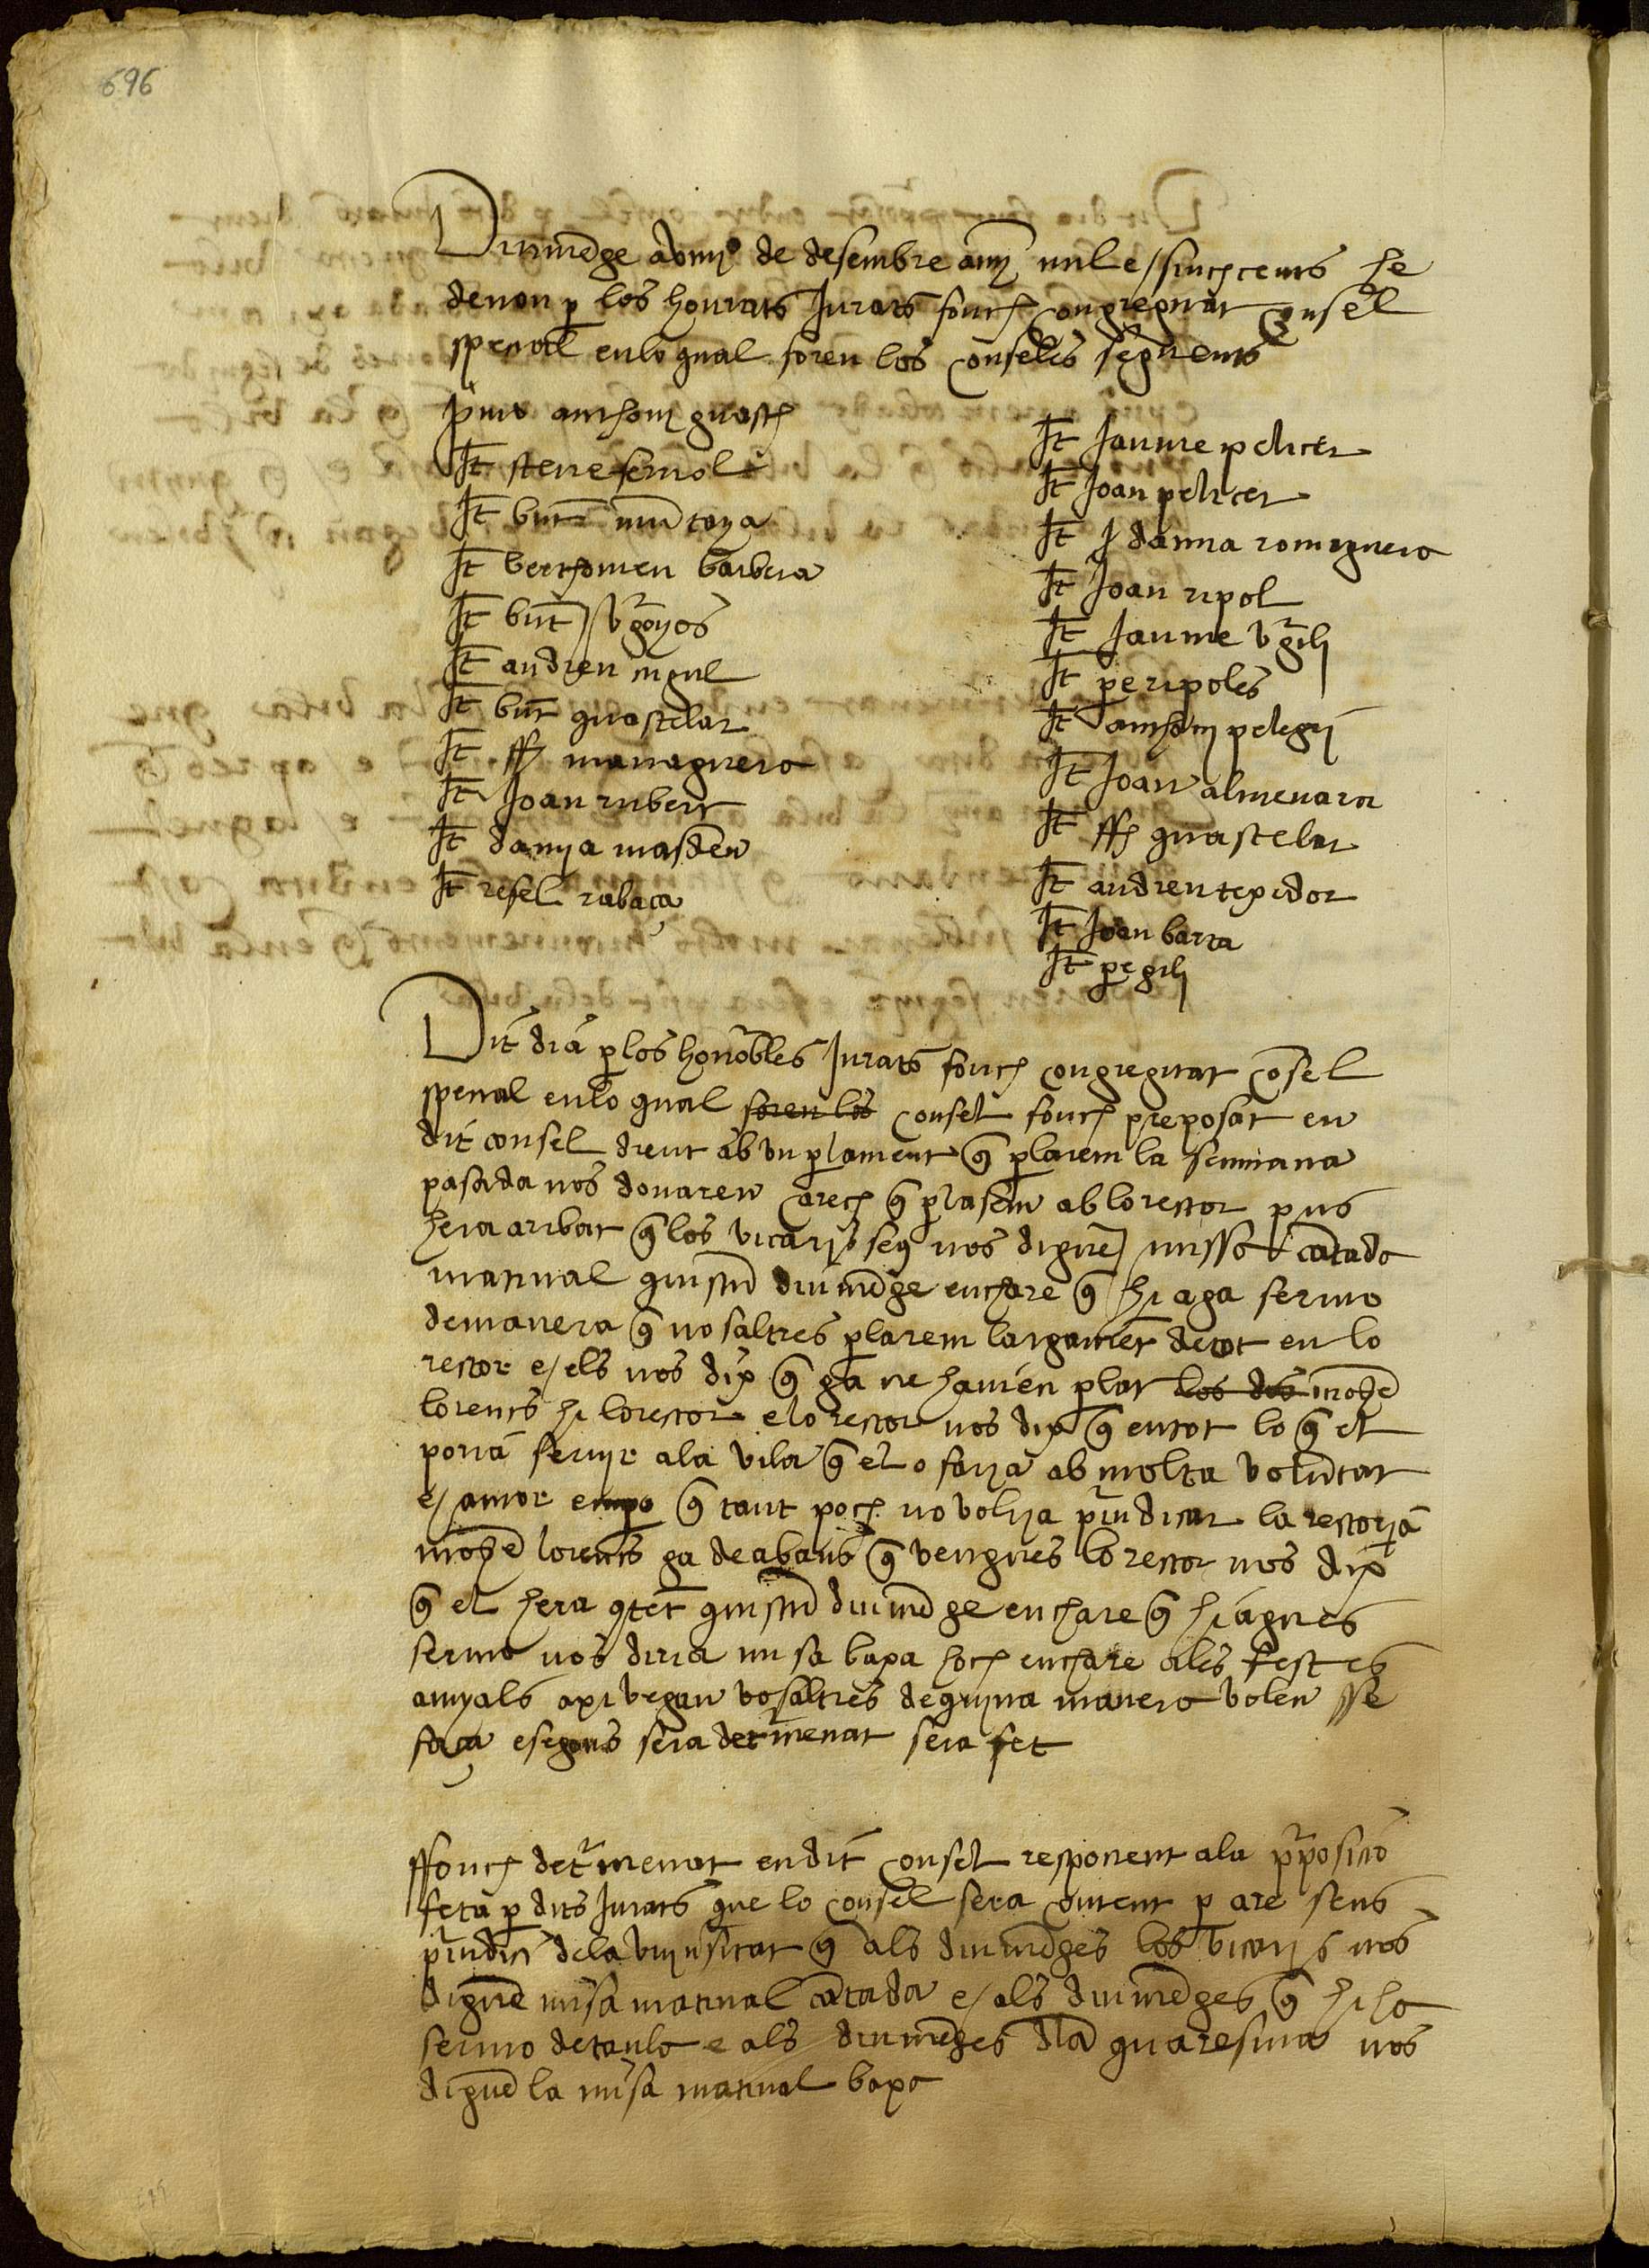 696
Diumẽge a bviiijº de desembre any mil e sinchcents he
denou p los honrats Jurats fonch congreguat Consel
spesial en lo qual foren los conselés següents
pmo anthony guasch
It steve ferrol
It bñt mũtoya
It berthomeu barbera
It bñt vrgoyos
It andreu ingul
It bñt guastelar
It ff managuero
It Joan rubert
It damya masdeu
It resel rabaça
It Jaume pelicer
It Joan pelicer
It J damia romeguero
It Joan ripol
It Jaume vrgili
It pe ripoles
It anthony pelegri
It Joan almenara
It ff guastelar
It andreu texidor
It Joan barra
It pe gili
Dit dia p los honobles Jurats fonch congreguat cõsel
spesial en lo qual foren los consel fonch preposat en
dit consel dient ab un plament q̃ plarem la semmana
pasada nos donaren carech q̃ plasem ab lo rector pus
hera aribat q̃ los vicarys seus nos diguẽ missa cãtada
matinal quiscũ diumẽge enchare q̃ hi aga sermo
de manera q̃ nosaltres plarem largamẽt de tot en lo
rector e els nos dix q̃ ga ne havien plat los dos mosẽ
lorens hi lo rector e lo rector nos dix q̃ en tot lo q̃ el
poria servyr a la vila q̃ el o farya ab molta voluntat
e amor empo q̃ tant poch no volya piudicar la rectorya
mosẽ lorens ga de abans q̃ vengues lo rector nos dix
q̃ el hera cõtet quiscũ diumẽge enchare q̃ hi agues
sermo nos diria misa baxa hoch enchare als festes
anyals axi vegau vosaltres de quyna manera voleu sse
faça e segons sera detmenat sera fet
ffonch detmenat en dit consel responent a la pposicio
feta p dits Jurats que lo consel sera content p are sens
piudici de la unyusitat q̃ als diumẽges los vicarys nos
diguẽ misa matinal cãtada e als diumẽges q̃ hi ha
sermo de taula e als diumẽges dla quaresma nos
diguẽ la misa matinal baxa